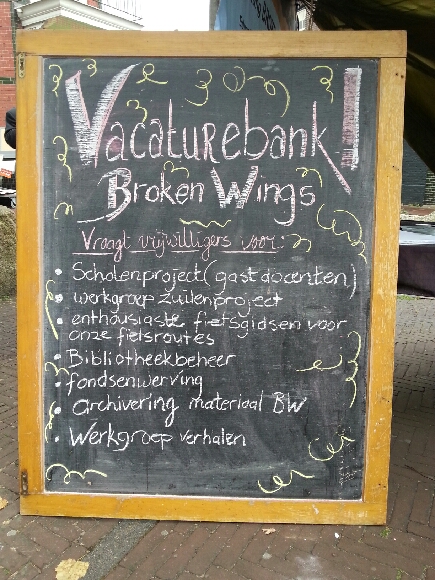 Vacaturebank!
Broken Wings
Vraagt vrijwilligers voor:
• Scholenproject (gastdocenten)
• werkgroep zuilenproject
• enthousiaste fietsgidsen voor
onze fietsroutes
• Bibliotheekbeheer
• fondsenwerving
• archivering materiaal BW
• Werkgroep verhalen